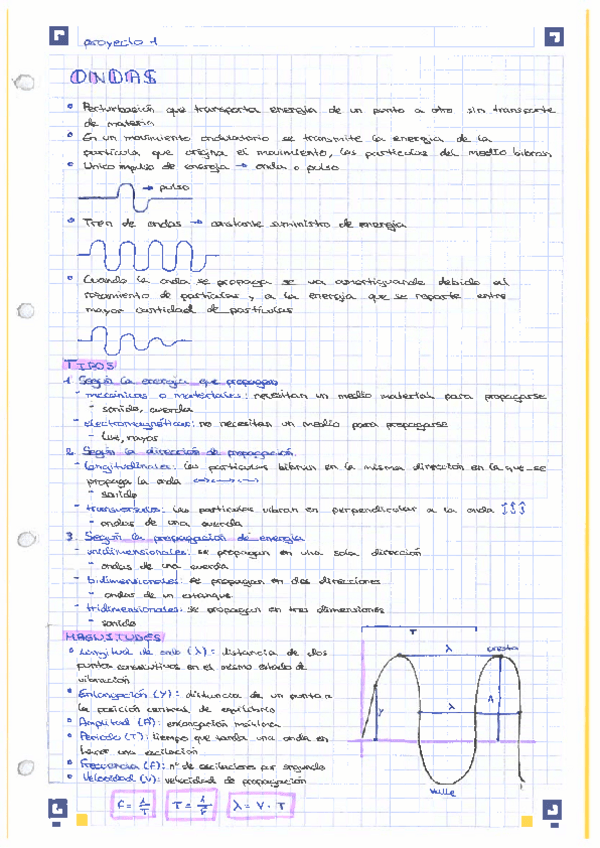 proyecto 1
ONDAS
• Perturbación que transporta energía de un punto a otro sin transporte
de materia
• En un movimiento ondulatorio se transmite la energía de la
partícula que origina el movimiento, las partículas del medio bibran
• Único impulso de energía → onda o pulso
→ pulso
• Tren de ondas → constante suministro de energía
• Cuando la onda se propaga se va amortiguando debido al
rozamiento de partículas y a la energía que se reparte entre
mayor cantidad de partículas
TIPOS
1. Según la energía que propagan
- mecánicas o materiales: necesitan un medio material para propagarse
- sonido, cuerda
- electromagnéticas: no necesitan un medio para propagarse
- luz, rayos
2. Según la dirección de propagación
- longitudinales: las partículas bibran en la misma dirección en la que se
propaga la onda
- sonido
- transversales: las partículas vibran en perpendicular a la onda
- ondas de una cuerda
3. Según la propagación de energía
- unidimensionales: se propagan en una sola dirección
- ondas de una cuerda
- bidimensionales: se propagan en dos direcciones
- ondas de un estanque
- tridimensionales: se propagan en tres dimensiones
- sonido
MAGNITUDES
• Longitud de onda (λ): distancia de dos
puntos consecutivos en el mismo estado de
vibración
• Enlongación (Y): distancia de un punto a
la posición central de equilibrio
• Amplitud (A): enlongación máxima
• Periodo (T): tiempo que tarda una onda en
hacer una oscilación
• Frecuencia (F): nº de oscilaciones por segundo
• Velocidad (V): velocidad de propagación
T
λ
cresta
λ
A
y
valle
F = 1/T
T = 1/F
λ = V · T